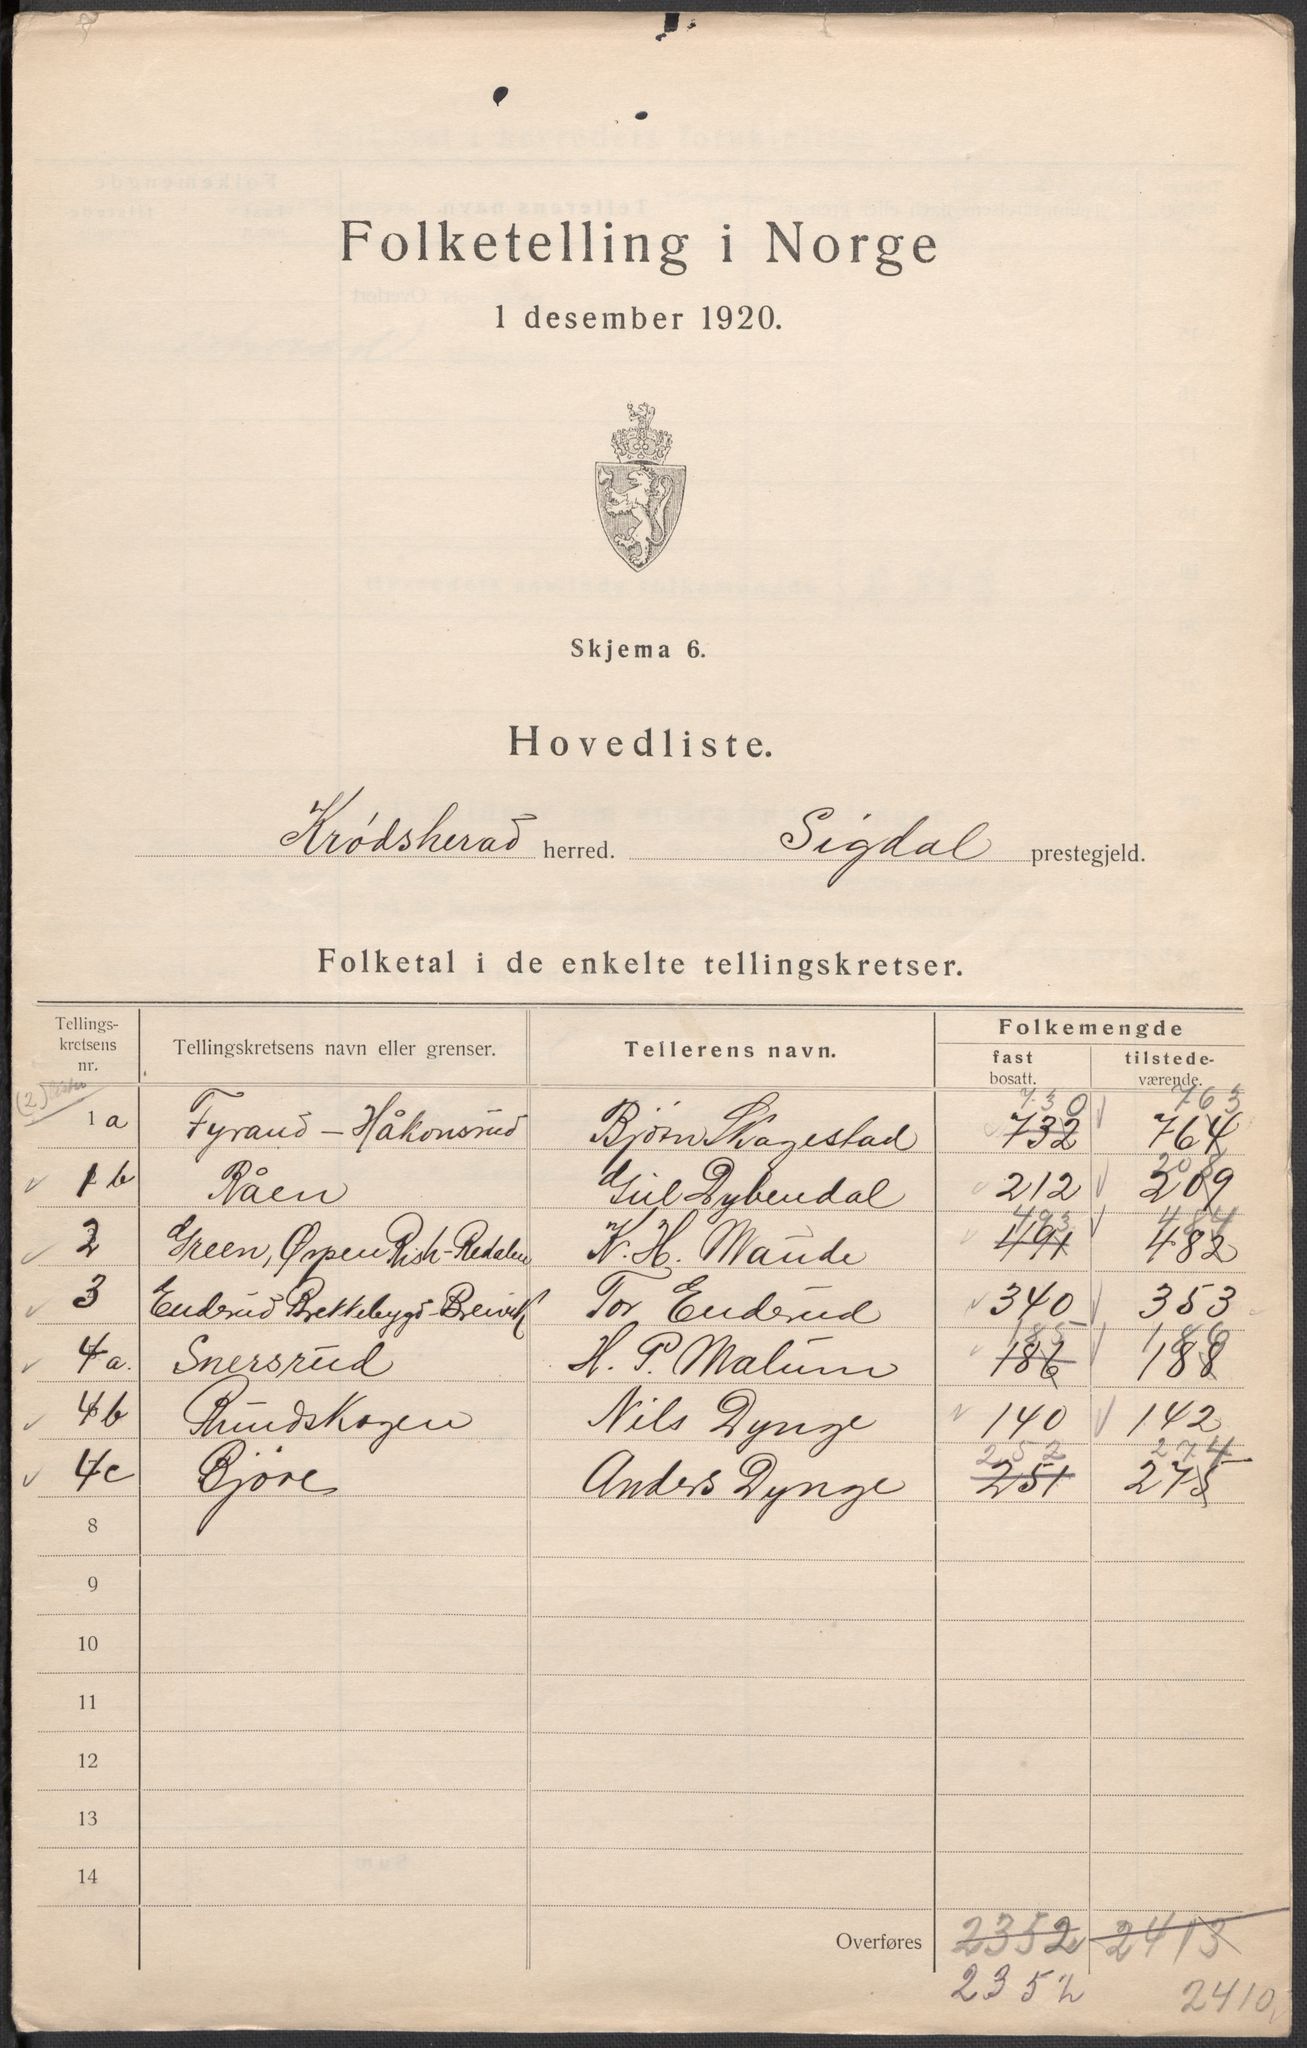 Folketelling i Norge
1 desember 1920.
Skjema 6.
Hovedliste.
Krødsherad herred. Sigdal prestegjeld.
Folketal i de enkelte tellingskretser.
Tellings-
kretsens
nr.
Tellingskretsens navn eller grenser.
Tellerens navn.
Folkemengde
fast
bosatt.
tilstede-
værende.
(2) lister
730 763
1a Fyrand - Håkonsrud Bjørn Skagestad 732 764
208
1b Råen Gul Dybendal 212 209
493 484
2 Green, Ørpen Rish-Redalen K. H. Maude 491 482
3 Enderud Brekkebygd-Breivik Tor Enderud 340 353
185 186
4a. Snersrud H. P. Malum 186 188
4b Rundskogen Nils Dynge 140 142
252 274
4c Bjøre Anders Dynge 251 275
8
9
10
11
12
13
14
Overføres 2352 2413
2352 2410